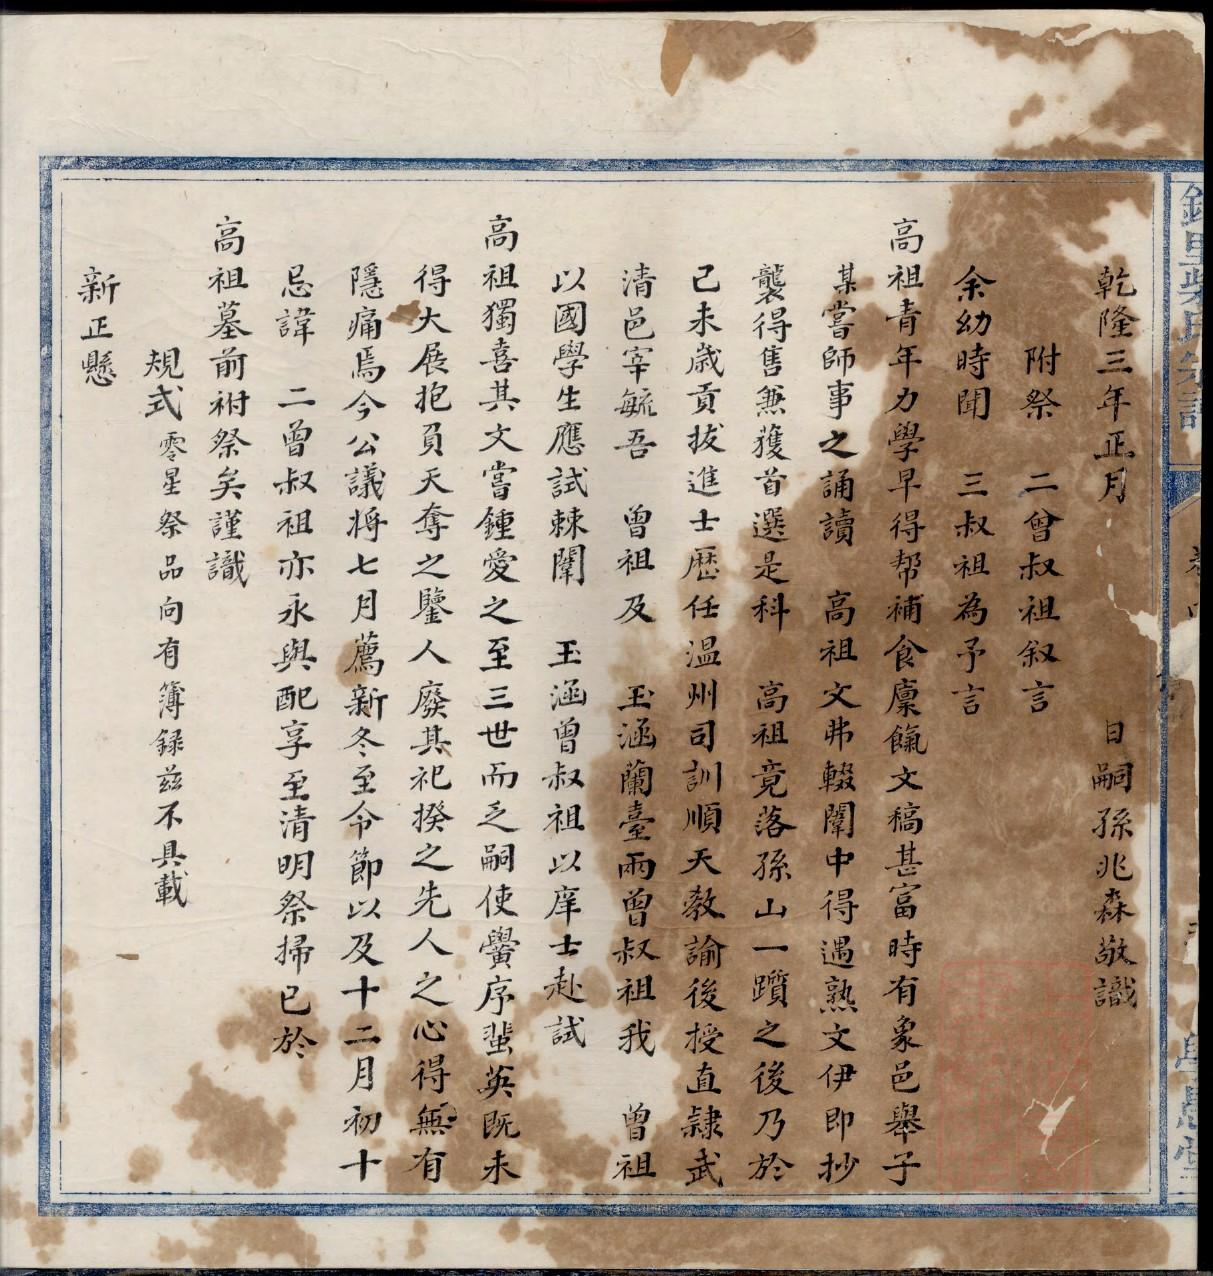 乾隆三年正月　日嗣孫兆森敬識
附祭　二曾叔祖叙言
余幼時聞　三叔祖為予言
高祖青年力學早得幇補食廩餼文稿甚富時有象邑舉子
某嘗師事之誦讀　高祖文弗輟闈中得遇熟文伊即抄
襲得售兼獲首選是科　高祖竟落孫山一躓之後乃於
己未歲貢拔進士歷任温州司訓順天敎諭後授直隷武
清邑宰毓吾　曾祖及　玉涵蘭臺兩曾叔祖我　曾祖
以國學生應試棘闈　玉涵曾叔祖以庠士赴試
高祖獨喜其文嘗鍾愛之至三世而乏嗣使黌序蜚英既未
得大展抱負天奪之鑒人廢其祀揆之先人之心得無有
隱痛焉今公議將七月薦新冬至令節以及十二月初十
忌諱　二曾叔祖亦永與配享至清明祭掃已於
高祖墓前祔祭矣謹識
規式　零星祭品向有簿録茲不具載
新正懸